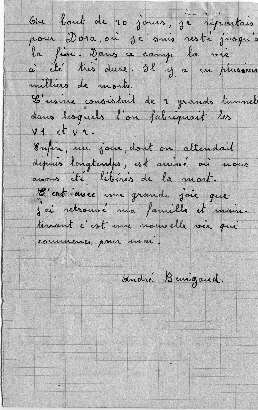 Au bout de 10 jours, je repartais
pour Dora, où je suis resté jusqu'à
la fin. Dans ce camp la vie
a été très dure. Il y a eu plusieurs
milliers de morts.
L'usine consistait de 2 grands tunnels
dans lesquels l'on fabriquait les
V1 et V2.
Enfin, un jour dont on attendait
depuis longtemps, est arrivé où nous
avons été libérés de la mort.
C'est avec une grande joie que
j'ai retrouvé ma famille et main-
tenant c'est une nouvelle vie qui
commence pour moi.
André